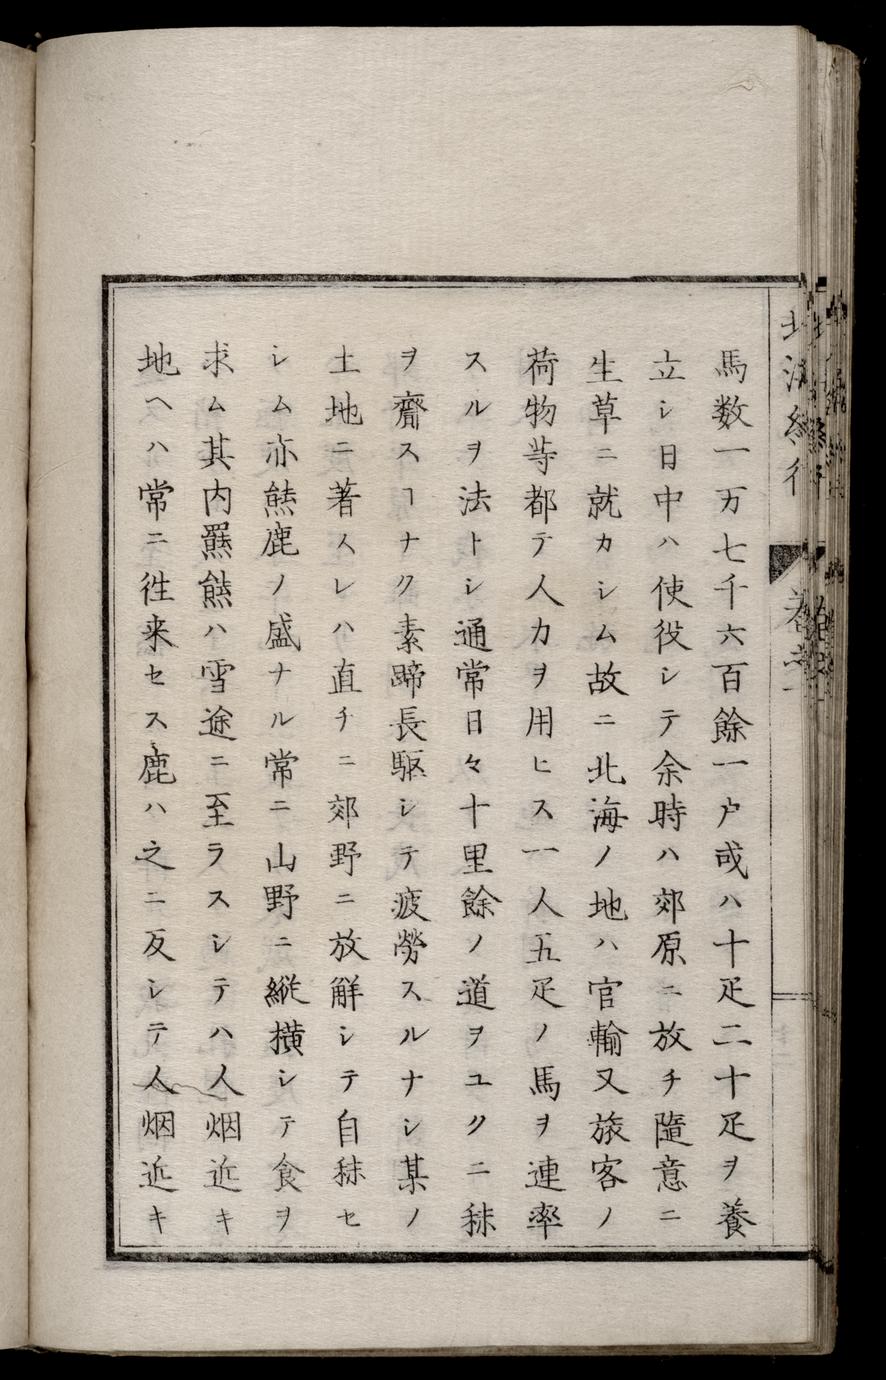 馬数一万七千六百餘一戸或ハ十疋二十疋ヲ養
立シ日中ハ使役シテ余時ハ郊原ニ放チ隨意ニ
生草ニ就カシム故ニ北海ノ地ハ官輸又旅客ノ
荷物等都テ人力ヲ用ヒス一人五疋ノ馬ヲ連率
スルヲ法トシ通常日々十里餘ノ道ヲユクニ秣
ヲ齎スヿナク素蹄長駆シテ疲勞スルナシ某ノ
土地ニ著スレハ直チニ郊野ニ放觧シテ自秣セ
シム亦熊鹿ノ盛ナル常ニ山野ニ縦横シテ食ヲ
求ム其内羆熊ハ雪途ニ至ラスシテハ人烟近キ
地ヘハ常ニ徃来セス鹿ハ之ニ反シテ人烟近キ